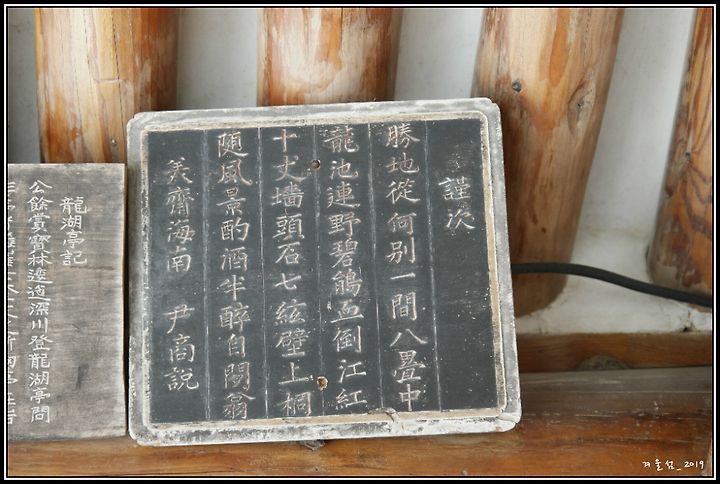 謹次
勝地從何別一間八疊中
龍池連野碧鵑血倒江紅
十丈墻頭石七絃壁上桐
随風景酌酒半醉自閒翁
美齋海南 尹商說
龍湖亭記
公餘賞寶林逶迤深川登龍湖亭問
겨울섬_2019